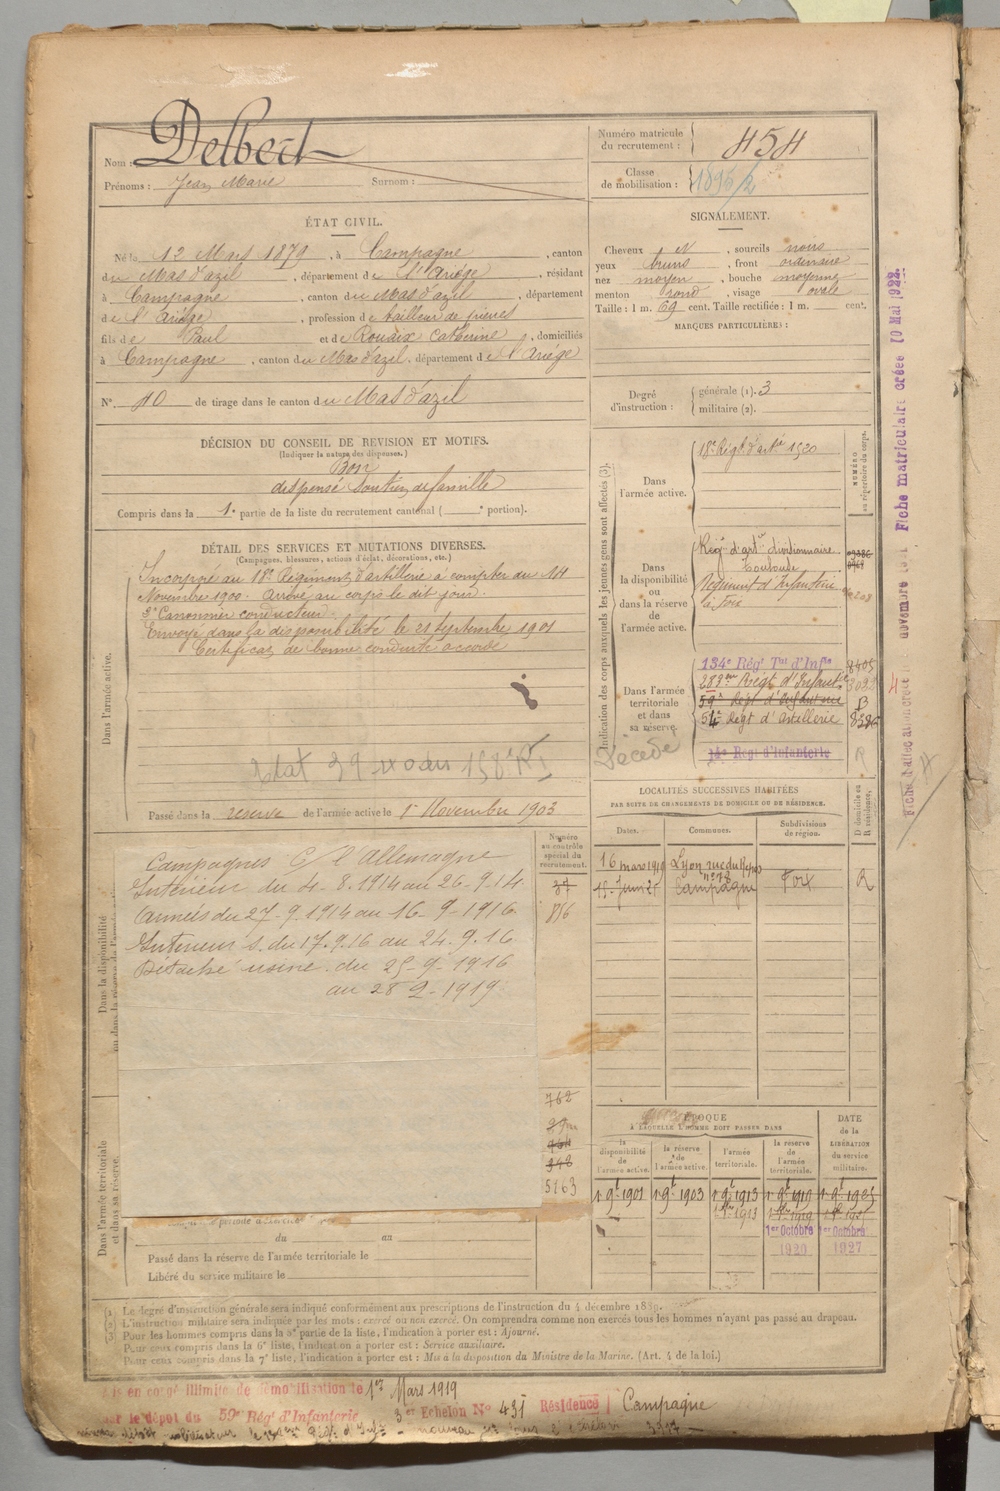 Nom : Delbert
Prénoms : Jean Marie Surnom :
Numéro matricule du recrutement : 454
Classe de mobilisation : 1896/2
ÉTAT CIVIL.
Né le 12 Mars 1879, à Campagne, canton
du Mas d'azil, département de l'Ariège, résidant
à Campagne, canton du Mas d'azil, département
de l'Ariège, profession de tailleur de pierres
fils de Paul et de Rouaix Catherine, domiciliés
à Campagne, canton du Mas d'azil, département de l'Ariège
N° 40 de tirage dans le canton du Mas d'azil
SIGNALEMENT.
Cheveux N, sourcils noirs
yeux bruns, front ordinaire
nez moyen, bouche moyenne
menton rond, visage ovale
Taille : 1 m. 69 cent. Taille rectifiée : 1 m. cent.
MARQUES PARTICULIÈRES :
Degré d'instruction : générale (1). 3
militaire (2).
DÉCISION DU CONSEIL DE REVISION ET MOTIFS.
(Indiquer la nature des dispenses.)
Bon
dispensé Soutien de famille
Compris dans la 1e partie de la liste du recrutement cantonal ( e portion).
DÉTAIL DES SERVICES ET MUTATIONS DIVERSES.
(Campagnes, blessures, actions d'éclat, décorations, etc.)
Dans l'armée active.
Incorporé au 18e Régiment d'artillerie à compter du 14
Novembre 1900. Arrivé au corps le dit jour.
2e Canonnier conducteur.
Envoyé dans la disponibilité le 21 septembre 1901
Certificat de bonne conduite accordé
Passé dans la reserve de l'armée active le 1er Novembre 1903
Indication des corps auxquels les jeunes gens sont affectés (3).
NUMÉRO au répertoire du corps.
Dans l'armée active.
18e Régt d'artie 1520
Dans la disponibilité ou dans la réserve de l'armée active.
Régt d'artie divisionnaire
Toulouse
Régiment d'Infanterie
à Foix
Dans l'armée territoriale et dans sa réserve
134e Régt Tal d'Infie
283me Régt d'Infanterie
59e Regt d'Infanterie
54e Régt d'Artillerie
14e Regt d'Infanterie
R
Décédé
Dans la disponibilité ou dans la réserve de l'armée active
Campagnes C/ l'Allemagne
Intérieur du 4-8-1914 au 26-9-14
Armées du 27-9-1914 au 16-9-1916
Intérieur S. du 17.9.16 au 24.9.16
Détaché usine du 25-9-1916
au 28 2-1919
Numéro au contrôle spécial du recrutement.
37
856
762
5163
LOCALITÉS SUCCESSIVES HABITÉES
PAR SUITE DE CHANGEMENTS DE DOMICILE OU DE RÉSIDENCE.
Dates. Communes. Subdivisions de région. D domicile ou R résidence.
16 mars 1919 Lyon rue du Repos
n° 78
15 Juin 21 Campagne Foix R
ÉPOQUE
À LAQUELLE L'HOMME DOIT PASSER DANS
la disponibilité de l'armée active. la réserve de l'armée active. l'armée territoriale. la réserve de l'armée territoriale. DATE de la LIBÉRATION du service militaire.
1er 9bre 1901 1er 9bre 1903 1er 9bre 1913 1er 9bre 1919 1er 9bre 1925
1er Octobre 1er Octobre
1920 1927
Dans l'armée territoriale et dans sa réserve.
du au
Passé dans la réserve de l'armée territoriale le
Libéré du service militaire le
(1) Le degré d'instruction générale sera indiqué conformément aux prescriptions de l'instruction du 4 décembre 1889.
(2) L'instruction militaire sera indiquée par les mots : exercé ou non exercé. On comprendra comme non exercés tous les hommes n'ayant pas passé au drapeau.
(3) Pour les hommes compris dans la 5e partie de la liste, l'indication à porter est : Ajourné.
Pour ceux compris dans la 6e liste, l'indication à porter est : Service auxiliaire.
Pour ceux compris dans la 7e liste, l'indication à porter est : Mis à la disposition du Ministre de la Marine. (Art. 4 de la loi.)
Mis en congé illimité de démobilisation le 1er Mars 1919
par le dépôt du 59e Régt d'Infanterie 3er Echelon N° 431 Résidence Campagne
Fiche matriculaire créée 10 Mai 1922.